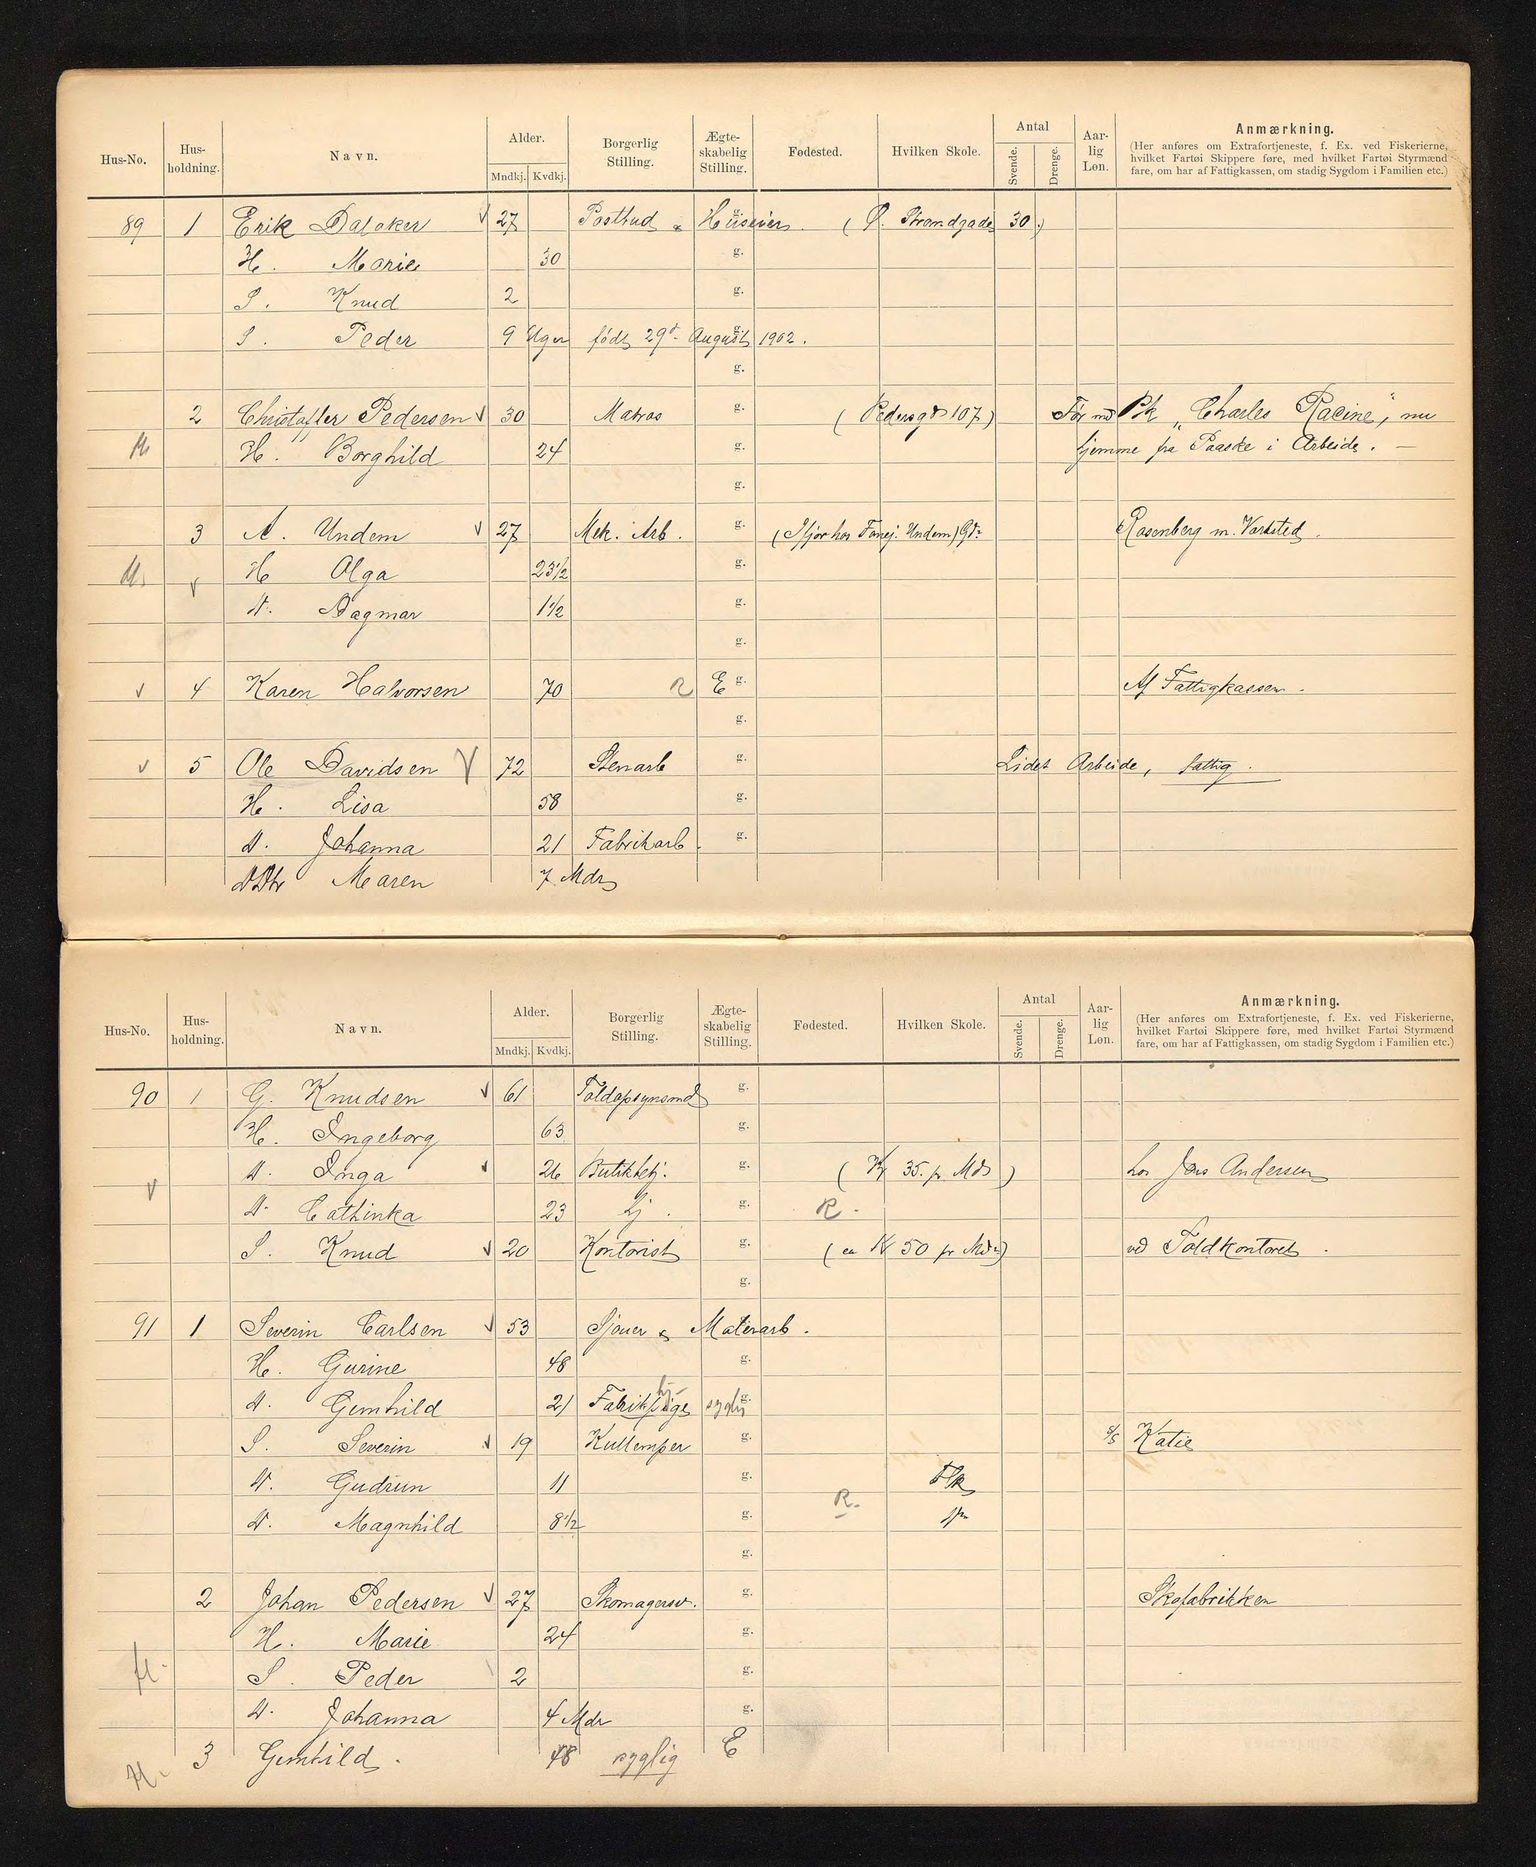 Hus-No. Hus-holdning. Navn. Alder. Mndkj. Kvdkj. Borgerlig Stilling. Ægte-skabelig Stilling. Fødested. Hvilken Skole. Antal Svende. Drenge. Aar-lig Løn. Anmærkning.
(Her anføres om Extrafortjeneste, f. Ex. ved Fiskerierne, hvilket Fartøi Skippere føre, med hvilket Fartøi Styrmænd fare, om har af Fattigkassen, om stadig Sygdom i Familien etc.)
89 1 Erik Daloker √ 27 Postbud & Huseier. (Ø. Strandgade 30.) g.
H. Marie 30 g.
S. Knud 2 g.
S. Peder 9 Uger født 29d. August 1902. g.
g.
2 Christoffer Pedersen √ 30 Matros g. (Pedersgd 107) Før md Bk „Charles Racine", nu
H. Borghild 24 g. hjemme fra Paaske i Arbeide. —
g.
3 A. Undem √ 27 Mek. Arb. g. (Ifjor hos Undem) Rosenberg m. Værksted.
H Olga 23 1/2 g.
√
D. Dagmar 1 1/2 g.
g.
√ 4 Karen Halvorsen 70 R E g. Af Fattigkassen.
g.
√ 5 Ole Davidsen √ 72 Stenarb g. Lidet Arbeide, fattig.
H. Lisa 58 g.
D. Johanna 21 Fabrikarb. g.
DDtr Maren 7 Mdr
Hus-No. Hus-holdning. Navn. Alder. Mndkj. Kvdkj. Borgerlig Stilling. Ægte-skabelig Stilling. Fødested. Hvilken Skole. Antal Svende. Drenge. Aar-lig Løn. Anmærkning.
(Her anføres om Extrafortjeneste, f. Ex. ved Fiskerierne, hvilket Fartøi Skippere føre, med hvilket Fartøi Styrmænd fare, om har af Fattigkassen, om stadig Sygdom i Familien etc.)
90 1 G. Knudsen √ 61 Toldopsynsmd g.
H. Ingeborg 63 g.
D. Inga √ 26 Butikbetj. g. (Kr 35. pr Md) hos Jens Andersen
√
D. Cathinka 23 hj. g. R.
S. Knud √ 20 Kontorist g. (ca Kr 50 pr Md) ved Toldkontoret.
g.
91 1 Severin Carlsen √ 53 Sjouer & Malerarb.
H. Gurine 48 g.
D. Gunhild 21 Fabrikpige hj- syglig g.
S. Severin √ 19 Kullemper g. s/s Katie
D. Gudrun 11 g. Flk
R.
D. Magnhild 8 1/2 g.
g.
2 Johan Pedersen √ 27 Skomagersv. g. Skofabrikken
H. Marie 24 g.
H. S. Peder 2 g.
D. Johanna 4 Mdr g.
H. 3 Gunhild. 48 syglig E